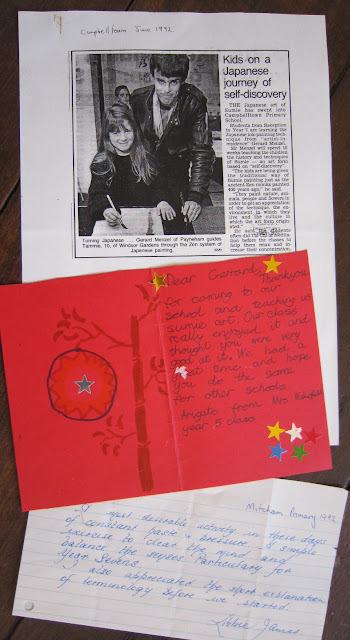 Campbelltown June 1992
Kids on a
Japanese
journey of
self-discovery
THE Japanese art of
Sumie has swept into
Campbelltown Primary
School.
Students from Reception
to Year 7 are learning the
Japanese ink-painting
technique from "artist-in-
residence" Gerard Menzel.
Mr Menzel will spend
weeks teaching the children
the history and techniques
of Sumie — an art form
based on "self-discovery".
"The kids are being given
the traditional way of
Sumie painting just as the
ancient Zen monks painted
400 years ago," he said.
"They paint nature, ani-
mals, people and flowers in
order to get an appreciation
of the technique, the en-
vironment in which they
live and the culture in
which the art form origin-
ated."
He said the students
often did
before the classes to
help them relax and in-
crease their concentration.
Turning Japanese ... Gerard Menzel of Payneham guides
Tammie, 10, of Windsor Gardens through the Zen system of
Japanese painting.
Dear Gerrard, Thankyou
for coming to our
school and teaching us
sumie art. Our class
really enjoyed it and
thought you were very
good at it. We had a
great time and hope
you do the same
for other schools
Arigato from Mrs
year 5 class
Mitcham Primary 1992
A most desirable activity in these days
of constant pace & pressure. A simple
exercise to clear the mind and
balance the senses. Particulary for
Year Sevens.
I also appreciated the short explanation
of terminology before we started.
James